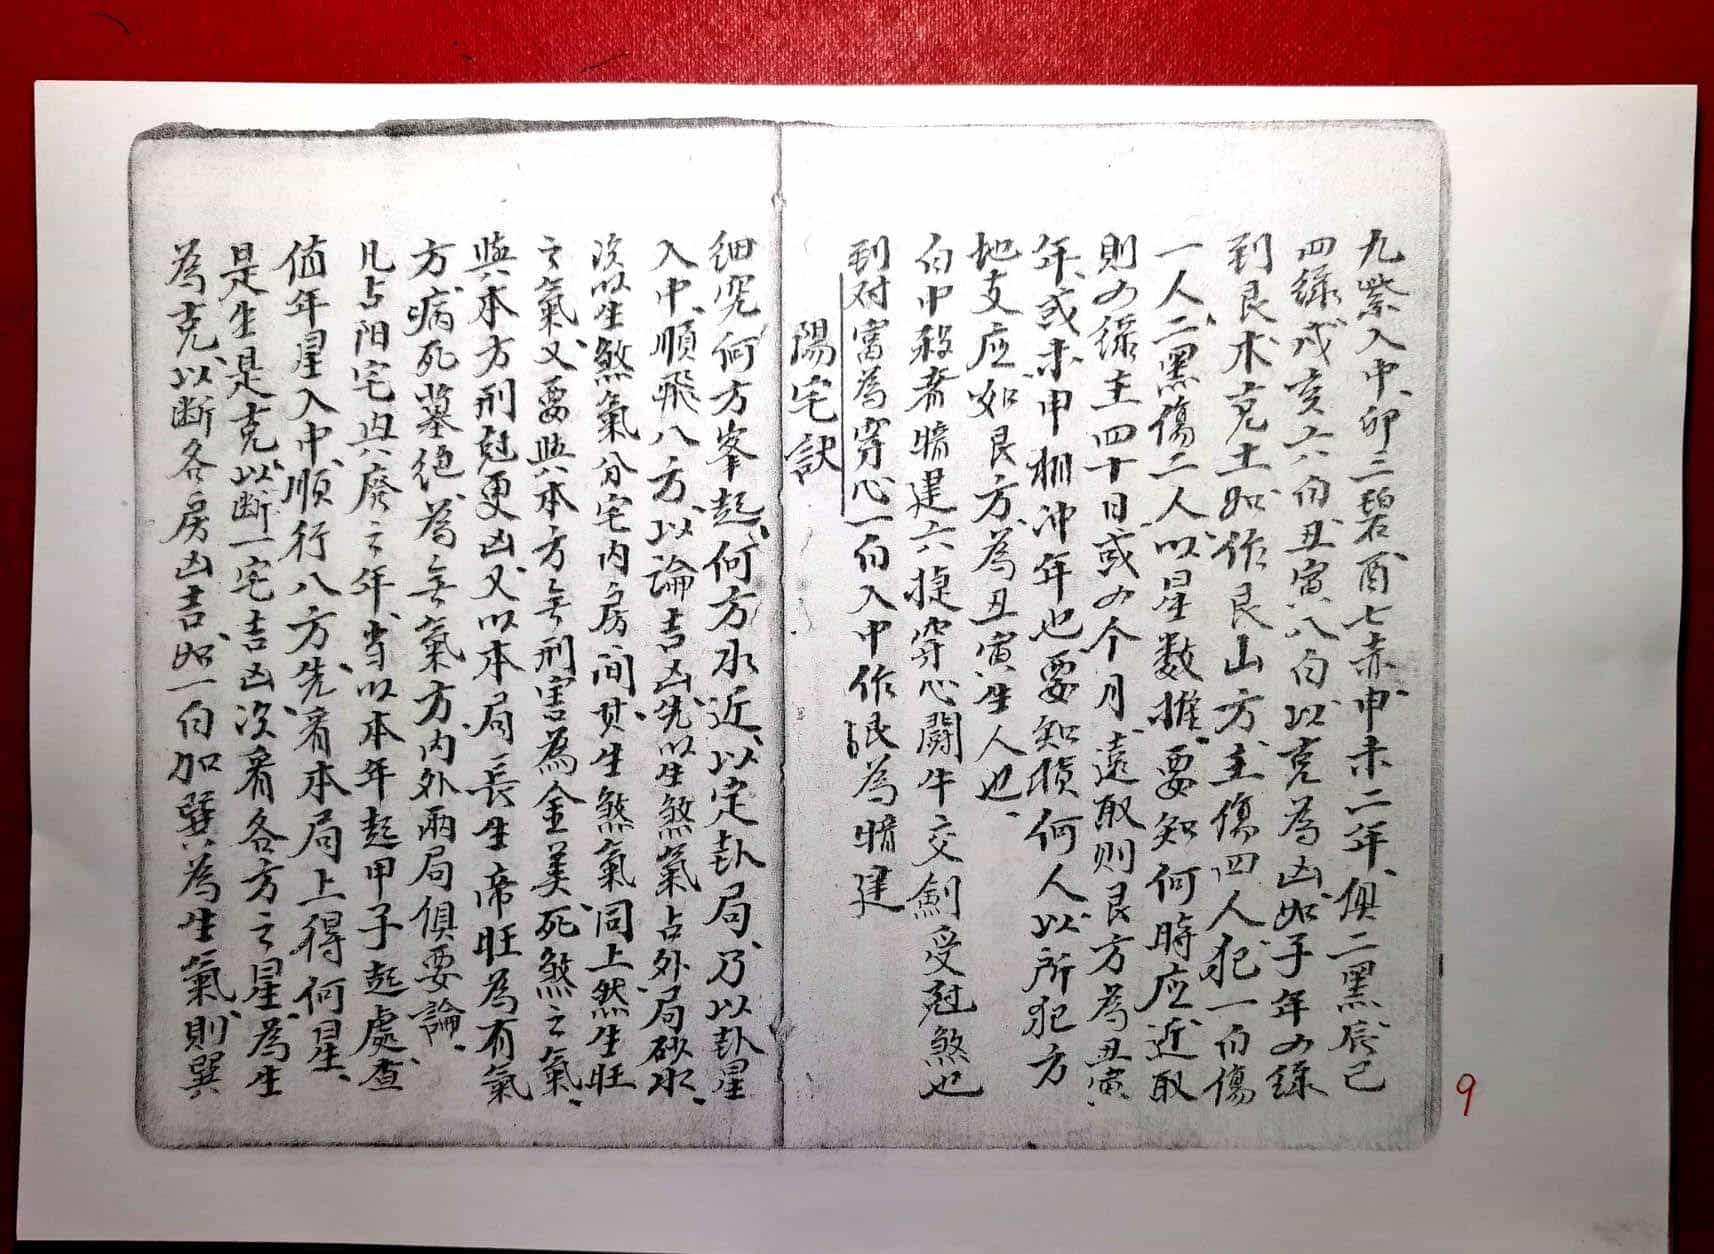 九紫入中、卯三碧酉七赤申未二年、俱二黑辰巳
四綠戌亥六白丑寅八白、以克為凶、如子年四綠
到艮木克土、如作艮山方、主傷四人、犯一白傷
一人、二黑傷二人、以星數推、要知何時应、近取
則四綠主四十日、或四个月、遠取則艮方為丑寅、
年、或未申相沖年也、要知損何人、以所犯方
地支应、如艮方、為丑寅生人也、
白中殺者暗建六捷穿心鬪牛交劍受尅煞也
到对宮為穿心一白入中作艮為暗建
陽宅訣
細究何方峯起、何方水近、以定卦局、乃以卦星
入中、順飛八方、以論吉凶、先以生煞氣占外局砂水、
次以生煞氣分宅内房间、其生煞氣同上、然生旺
之氣、又要與本方無刑害為金美、死煞之氣、
與本方刑尅更凶、又以本局長生帝旺為有氣
方、病死墓绝、為無氣方、内外兩局俱要論、
凡占阳宅興廢之年、当以本年起甲子起處、查
值年星入中、順行八方、先看本局上得何星、
是生是克、以断一宅吉凶、次看各方之星、為生
為克、以断各房凶吉、如一白加巽、為生氣、則巽
9